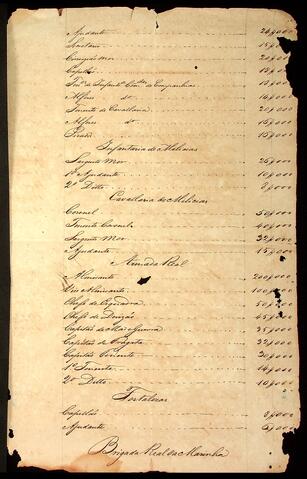 Ajudante 24$000
Secretario 15$000
Cirurgião mor 20$000
Capellão
Alferes do 16$000
Tenente de Cavallaria 20$000
Alferes do 15$000
Picador 15$000
Infantaria de Milicias
Sargento Mor 26$000
1º Ajudante 10$000
2º Ditto 8$000
Cavallaria de Milicias
Coronel 50$000
Tenente Coronel 40$000
Sargento Mor 32$000
Ajudante 15$000
Armada Real
Almirante 200$000
Vice Almirante 100$000
Chefe de Esquadra
Chefe de Divizão 45$000
Capitão de Mar e Guerra 35$000
Capitão de Fragata 32$000
Capitão Tenente
1º Tenente 14$000
2º Ditto 10$000
Fortalezas
Capellão 8$000
Ajudante 6$000
Brigada Real da Marinha